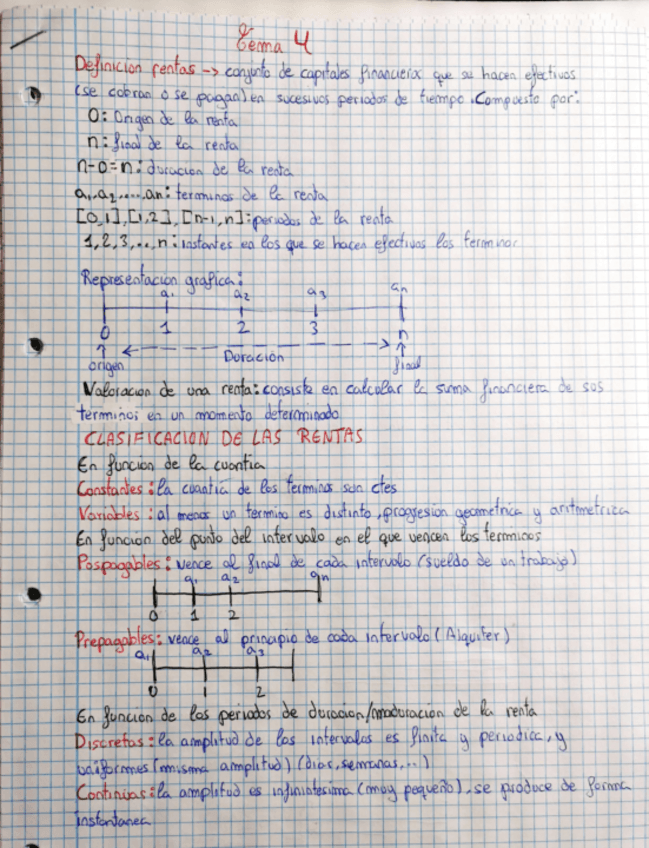 Tema 4
Definicion rentas -> conjunto de capitales financiero que se hacen efectivos
(se cobran o se pagan) en sucesivos periodos de tiempo. Compuesto por:
0: Origen de la renta
n: final de la renta
n-0=n: duracion de la renta
a1, a2, ..., an: terminos de la renta
[0,1],[1,2],[n-1,n]: periodos de la renta
1,2,3,..,n: instantes en los que se hacen efectivos los terminos
Representacion grafica:
a1 a2 a3 an
0 1 2 3 n
Duración
origen final
Valoracion de una renta: consiste en calcular la suma financiera de sus
terminos en un momento determinado
CLASIFICACION DE LAS RENTAS
En funcion de la cuantia
Constantes: la cuantia de los terminos son ctes
Variables: al menos un termino es distinto, progresion geometrica y aritmetrica
En funcion del punto del intervalo en el que vencen los terminos
Pospagables: vence al final de cada intervalo (sueldo de un trabajo)
a1 a2 an
0 1 2
Prepagables: vence al principio de cada intervalo (Alquiler)
a1 a2 a3
0 1 2
En funcion de los periodos de duracion/maduración de la renta
Discretas: la amplitud de los intervalos es finita y periodica, y
uniformes (misma amplitud) (dias, semanas, ..)
Continuas: la amplitud es infinintesima (muy pequeño), se produce de forma
instantanea